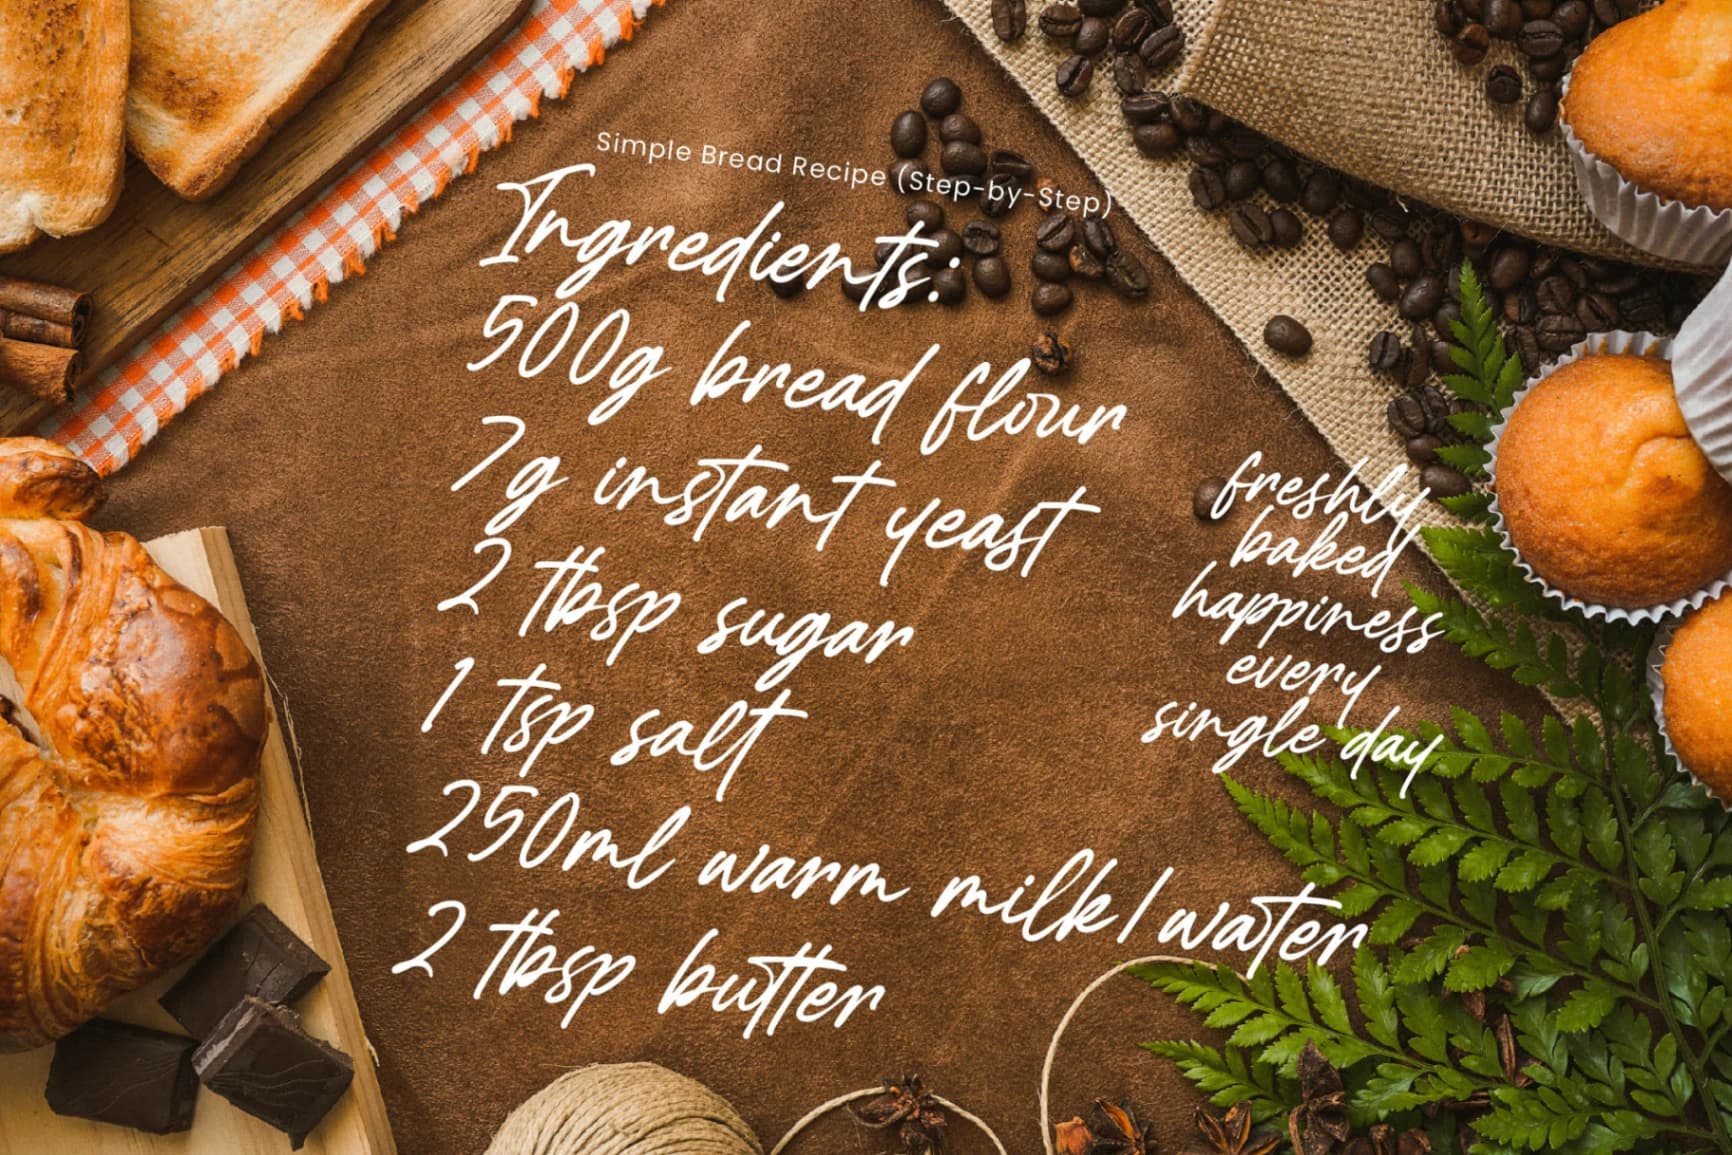 Simple Bread Recipe (Step-by-Step)
Ingredients:
500g bread flour
7g instant yeast
2 tbsp sugar
1 tsp salt
250ml warm milk/water
2 tbsp butter
freshly
baked
happiness
every
single day